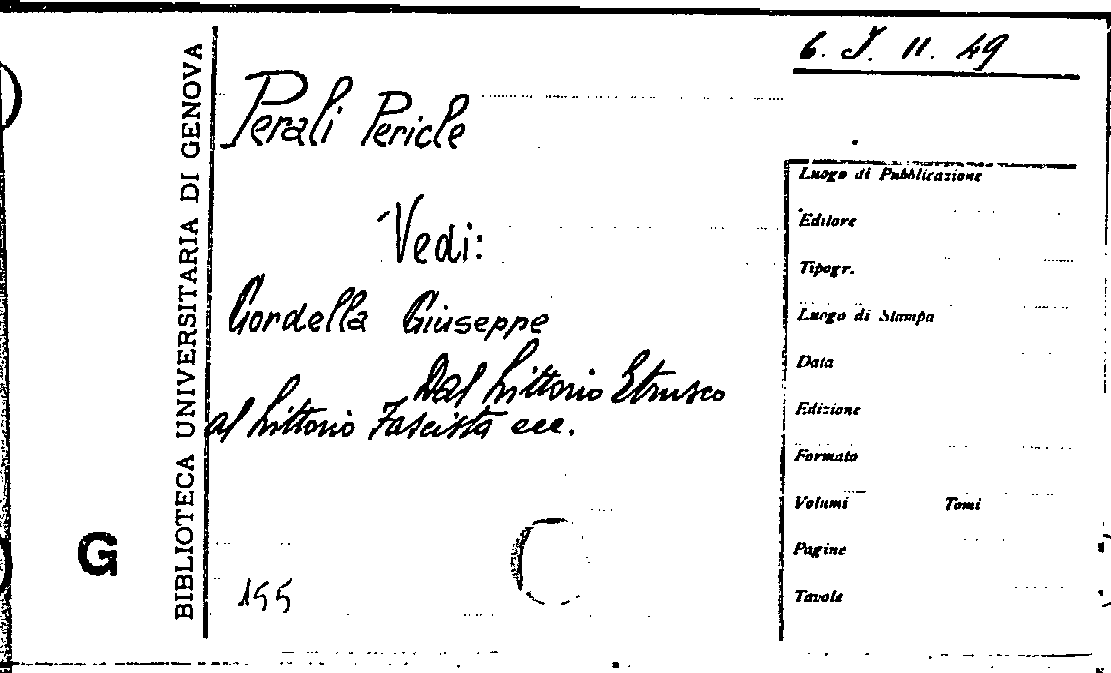 6. J. 11. 49
BIBLIOTECA UNIVERSITARIA DI GENOVA
G
Perali Pericle
Vedi:
Gordella Giuseppe
Dal Littorio Etrusco
al Littorio Fascista ecc.
155
Luogo di Pubblicazione
Editore
Tipogr.
Luogo di Stampa
Data
Edizione
Formato
Volumi Tomi
Pagine
Tavole